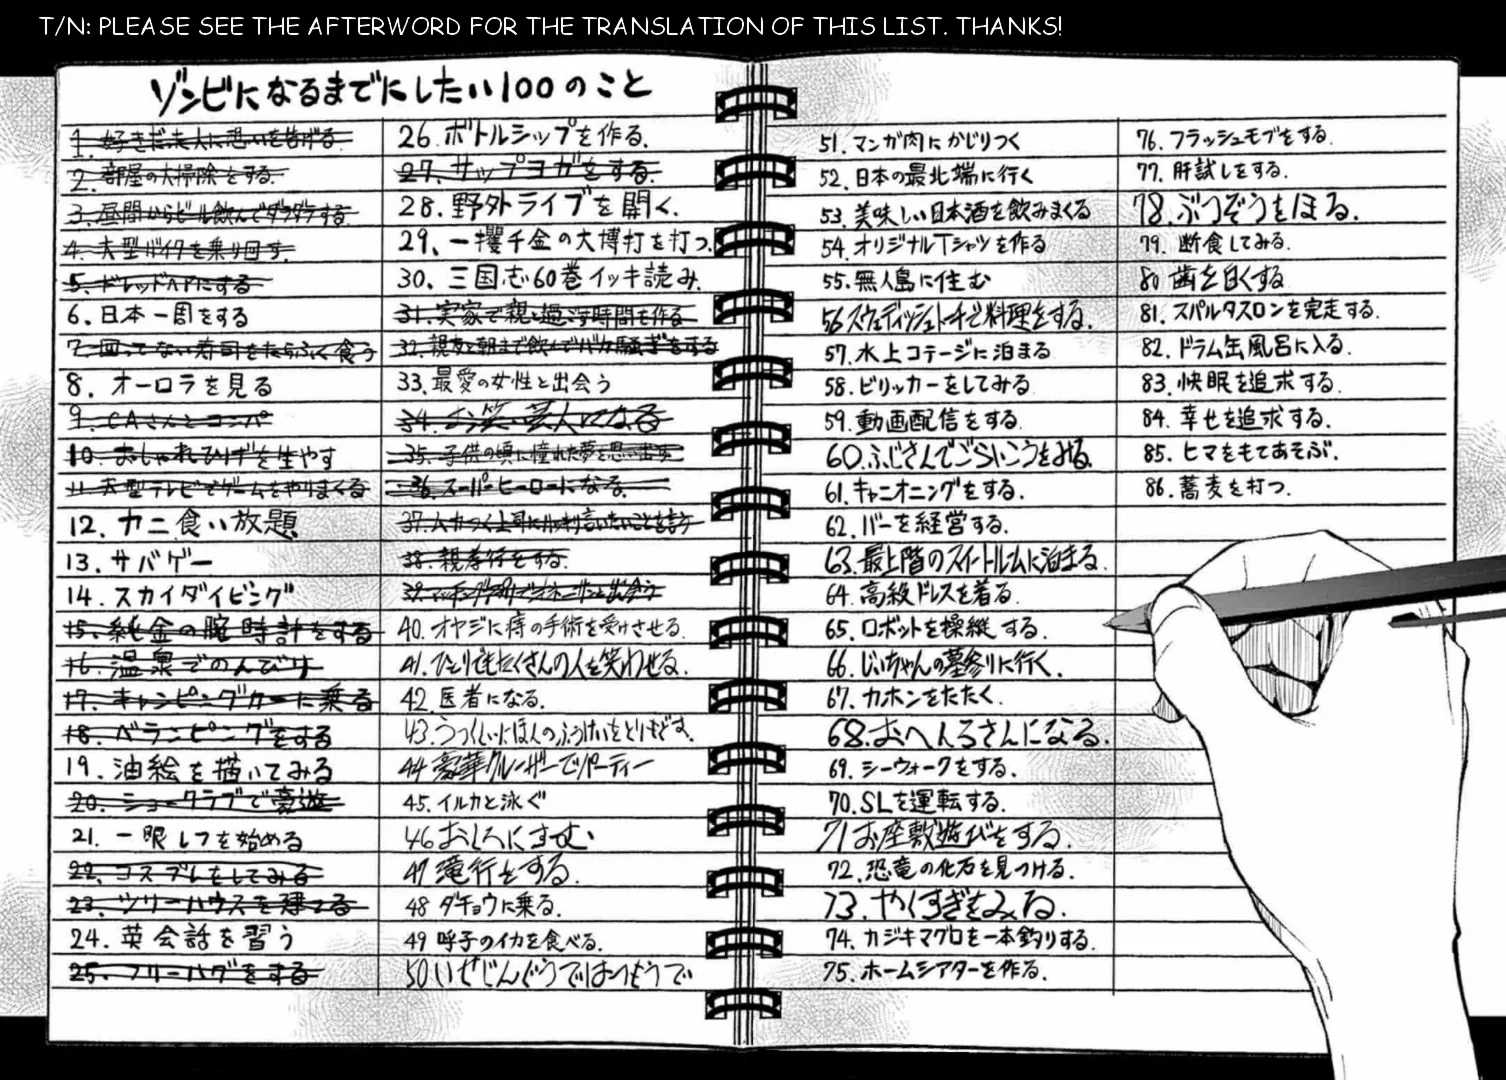 T/N: PLEASE SEE THE AFTERWORD FOR THE TRANSLATION OF THIS LIST. THANKS!
ゾンビになるまでにしたい100のこと
1. 好きだった人に思いを告げる.
2. 部屋の大掃除をする.
3. 昼間からビール飲んでダラダラする
4. 大型バイクを乗り回す.
5. ドレッドヘアにする
6. 日本一周をする
7. 回ってない寿司をたらふく食う
8. オーロラを見る
9. CAさんとコンパ
10. おしゃれひげを生やす
11. 大型テレビでゲームをやりまくる
12. カニ食い放題
13. サバゲー
14. スカイダイビング
15. 純金の腕時計をする
16. 温泉でのんびり
17. キャンピングカーに乗る
18. ベランピングをする
19. 油絵を描いてみる
20. ショークラブで豪遊
21. 一眼レフを始める
22. コスプレをしてみる
23. ツリーハウスを建てる
24. 英会話を習う
25. フリーハグをする
26. ボトルシップを作る.
27. サップヨガをする.
28. 野外ライブを開く.
29. 一攫千金の大博打を打つ.
30. 三国志60巻イッキ読み.
31. 実家で親と過ごす時間を作る
32. 親友と朝まで飲んでバカ騒ぎをする
33. 最愛の女性と出会う
34. お笑い芸人になる
35. 子供の頃に憧れた夢を思い出す
36. スーパーヒーローになる.
37. ムカつく上司にハッキリ言いたいことを言う
38. 親孝行をする.
39. マッチングアプリで
40. オヤジに痔の手術を受けさせる.
41. ひとりでもたくさんの人を笑わせる.
42. 医者になる.
43. うつくしいにほんのふうけいをとりもどす.
44 豪華クルーザーでパーティー
45. イルカと泳ぐ
46 おしろにすむ
47 滝行をする.
48 ダチョウに乗る.
49 呼子のイカを食べる.
50 いせじんぐうではつもうで
51. マンガ肉にかじりつく
52. 日本の最北端に行く
53. 美味しい日本酒を飲みまくる
54. オリジナルTシャツを作る
55. 無人島に住む
56 スウェディッシュトーチで料理をする.
57. 水上コテージに泊まる
58. ビリッカーをしてみる
59. 動画配信をする.
60. ふじさんでごらいこうをみる.
61. キャニオニングをする.
62. バーを経営する.
63. 最上階のスイートルームに泊まる.
64. 高級ドレスを着る.
65. ロボットを操縦する.
66. じいちゃんの墓参りに行く.
67. カホンをたたく.
68. おへんろさんになる.
69. シーウォークをする.
70. SLを運転する.
71 お座敷遊びをする.
72. 恐竜の化石を見つける.
73. やくすぎをみる.
74. カジキマグロを一本釣りする.
75. ホームシアターを作る.
76. フラッシュモブをする.
77. 肝試しをする.
78. ぶつぞうをほる.
79. 断食してみる.
80 歯を白くする
81. スパルタスロンを完走する.
82. ドラム缶風呂に入る.
83. 快眠を追求する.
84. 幸せを追求する.
85. ヒマをもてあそぶ.
86. 蕎麦を打つ.